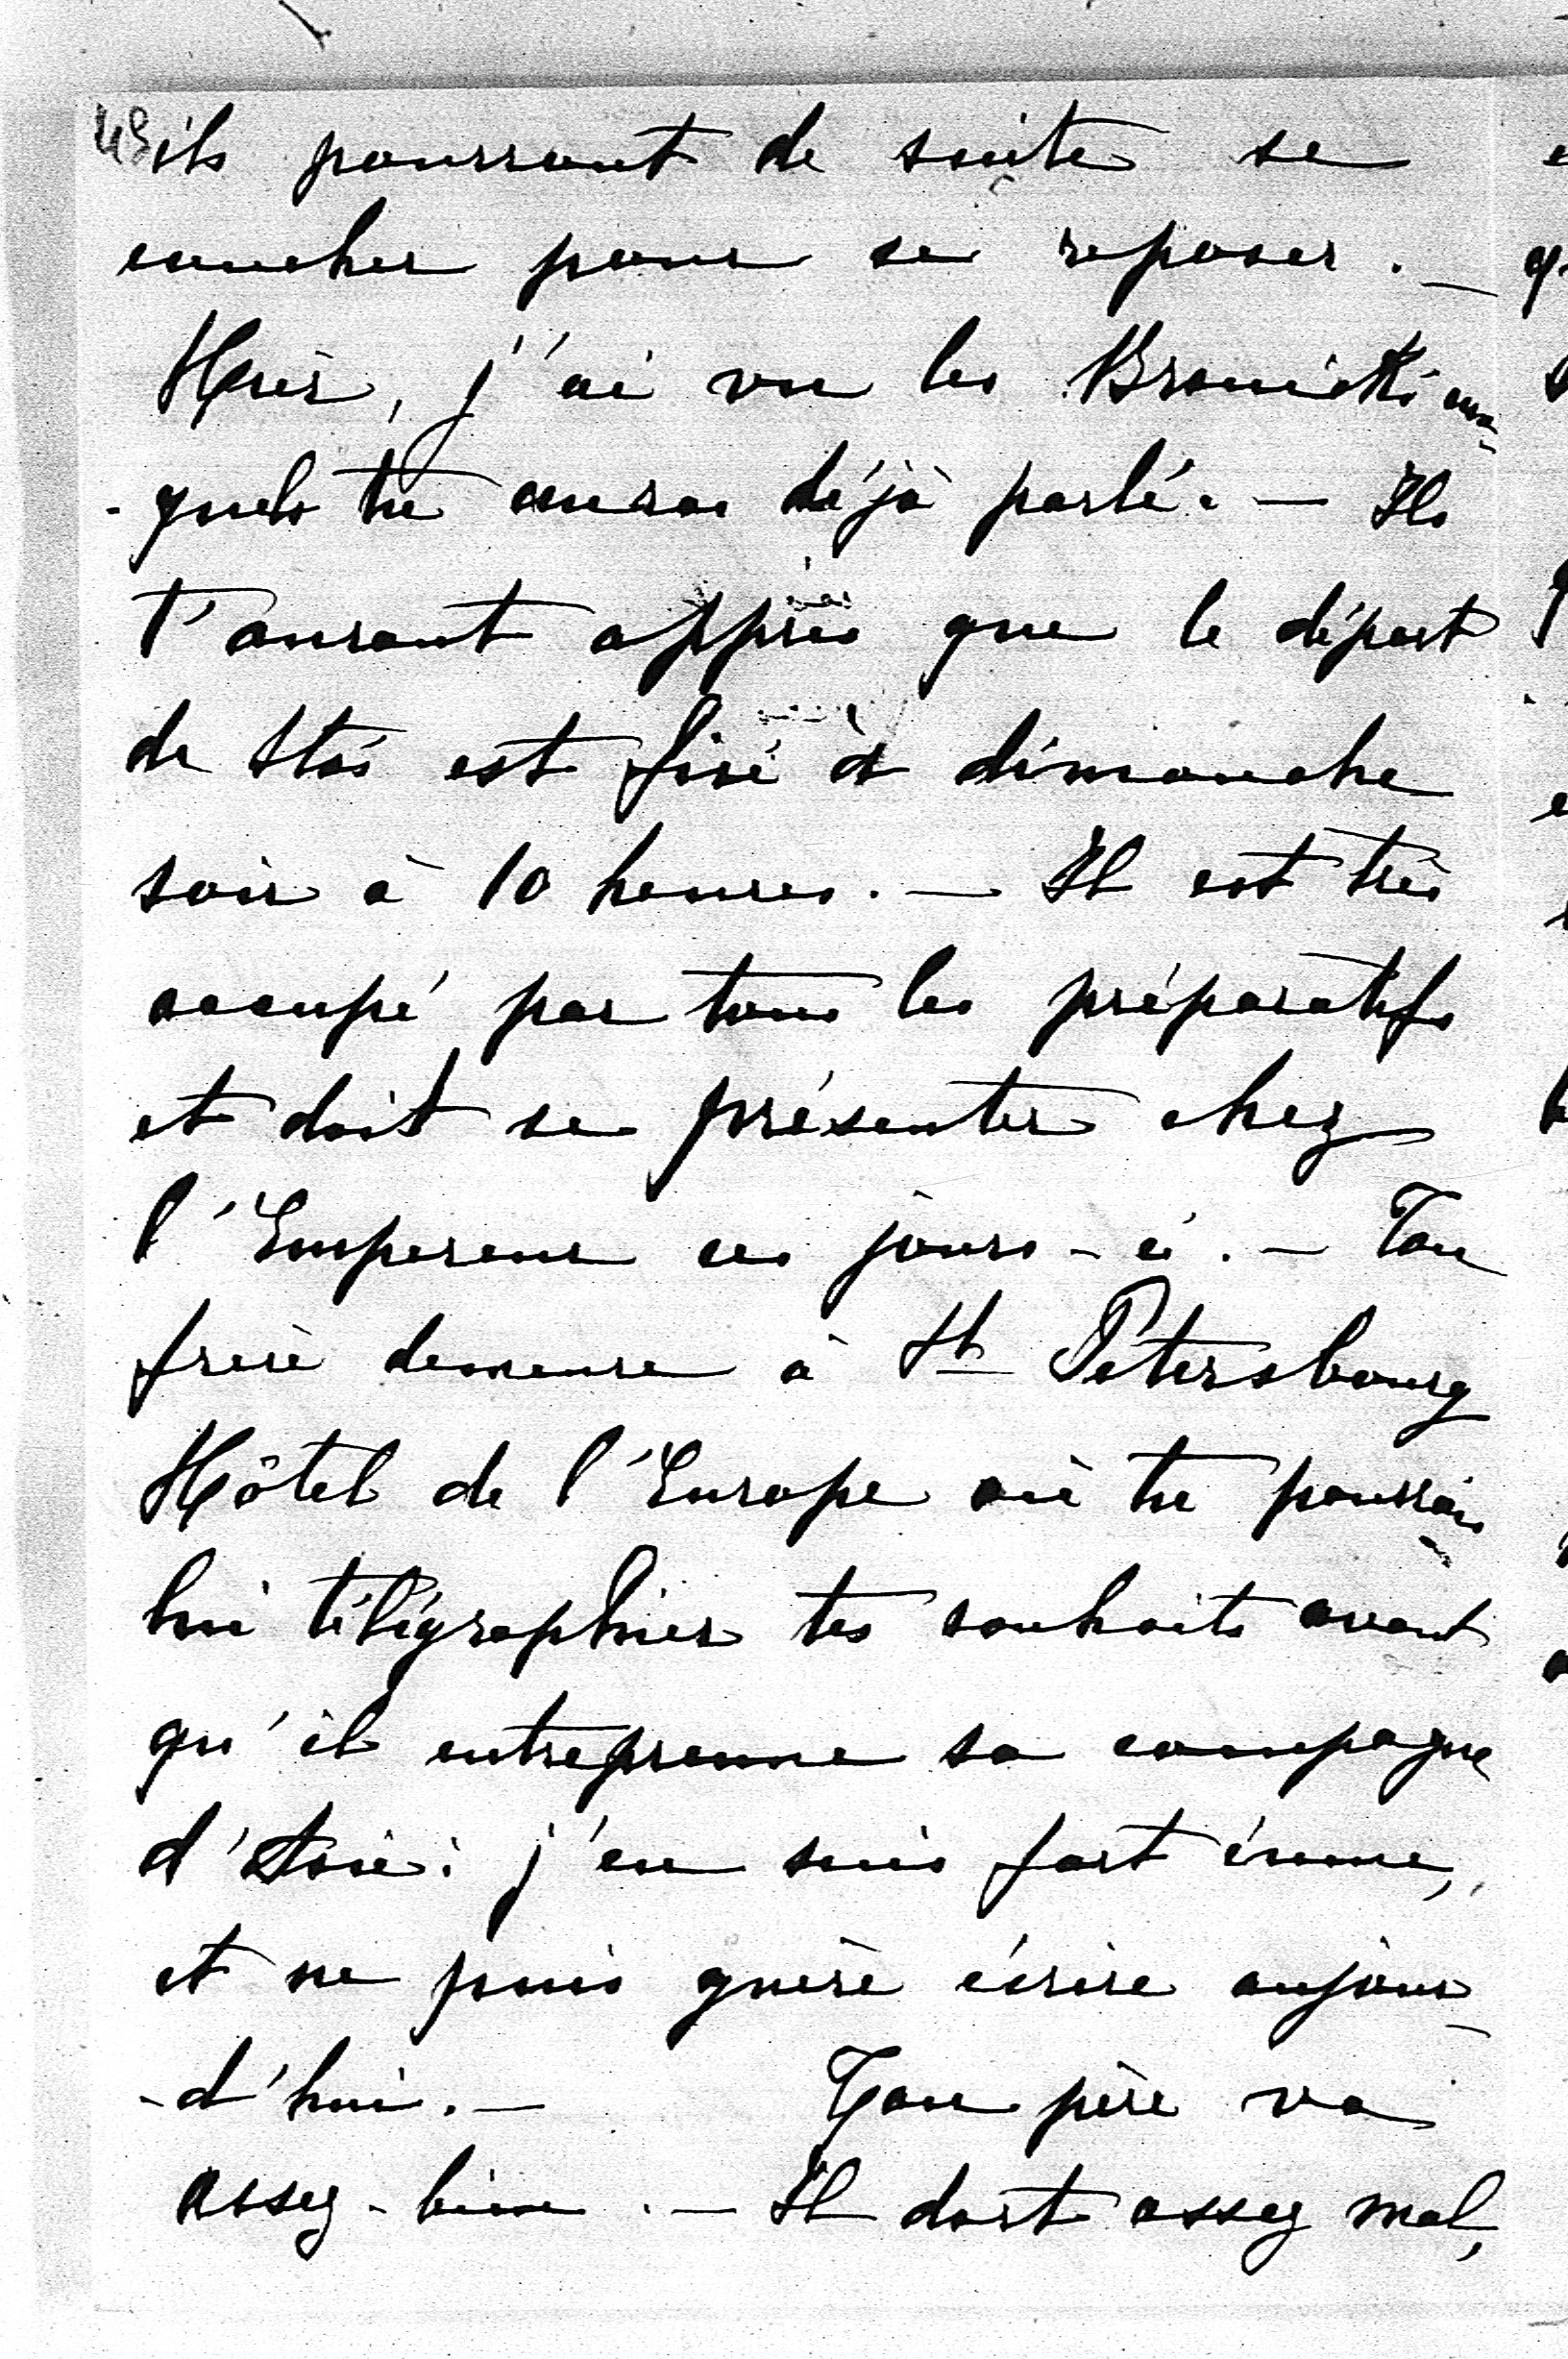 43
ils pourront de suite se
coucher pour se reposer. —
Hier, j'ai vu les Broniatki aux-
-quels tu auras déjà parlé. — Ils
t'auront appris que le départ
de Stas est fixé à dimanche
soir à 10 heures. — Il est très
occupé par tous les préparatifs
et doit se présenter chez
l'Empereur ces jours-ci. — Ton
frère demeure à St Petersbourg
Hôtel de l'Europe où tu pourrais
lui télégraphier tes souhaits avant
qu'il entreprenne sa campagne
d'Asie: j'en suis fort émue,
et ne puis guère écrire aujour-
-d'hui. — Ton père va
assez-bien. — Il dort assez mal,